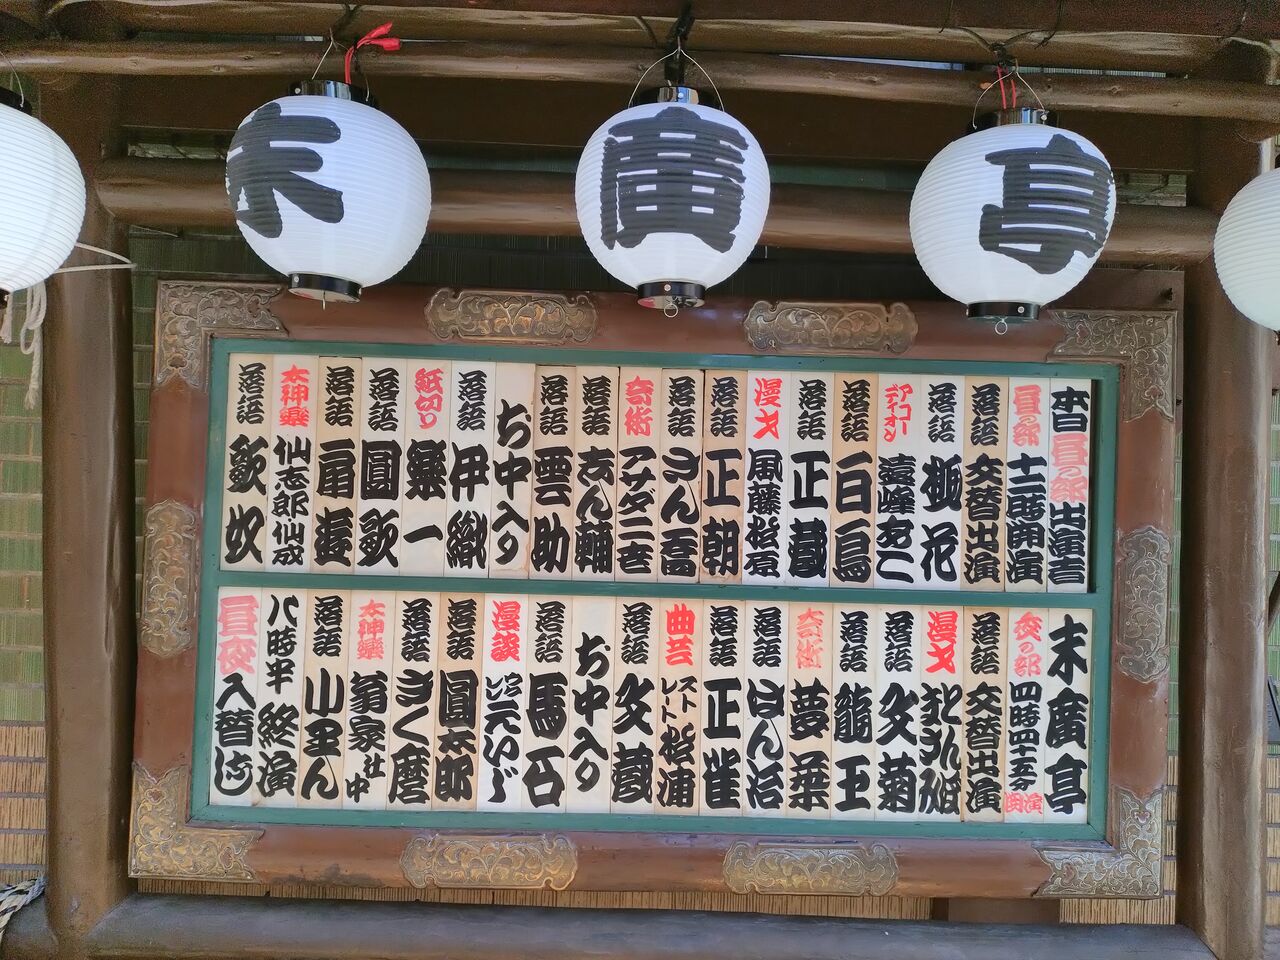 末
廣
亭
本日昼の部出演者
昼の部 十二時開演
落語 交替出演
落語
アコーディオン 遠峰あこ
落語 白鳥
落語 正蔵
漫才 風藤松原
落語 正朝
落語 さん喬
奇術 アサダ二世
落語 志ん輔
落語 雲助
お中入り
落語 伊織
紙切り 樂一
落語 圓歌
落語 扇遊
太神樂 仙志郎仙成
落語 歌奴
末廣亭
夜の部 四時四十五分開演
落語 交替出演
漫才
落語 文菊
落語 龍玉
奇術 夢葉
落語 はん治
落語 正雀
曲芸 ストレート松浦
落語 文蔵
お中入り
落語 馬石
漫談
落語 圓太郎
落語 きく麿
太神樂 翁家社中
落語 小里ん
八時半 終演
昼夜入替なし